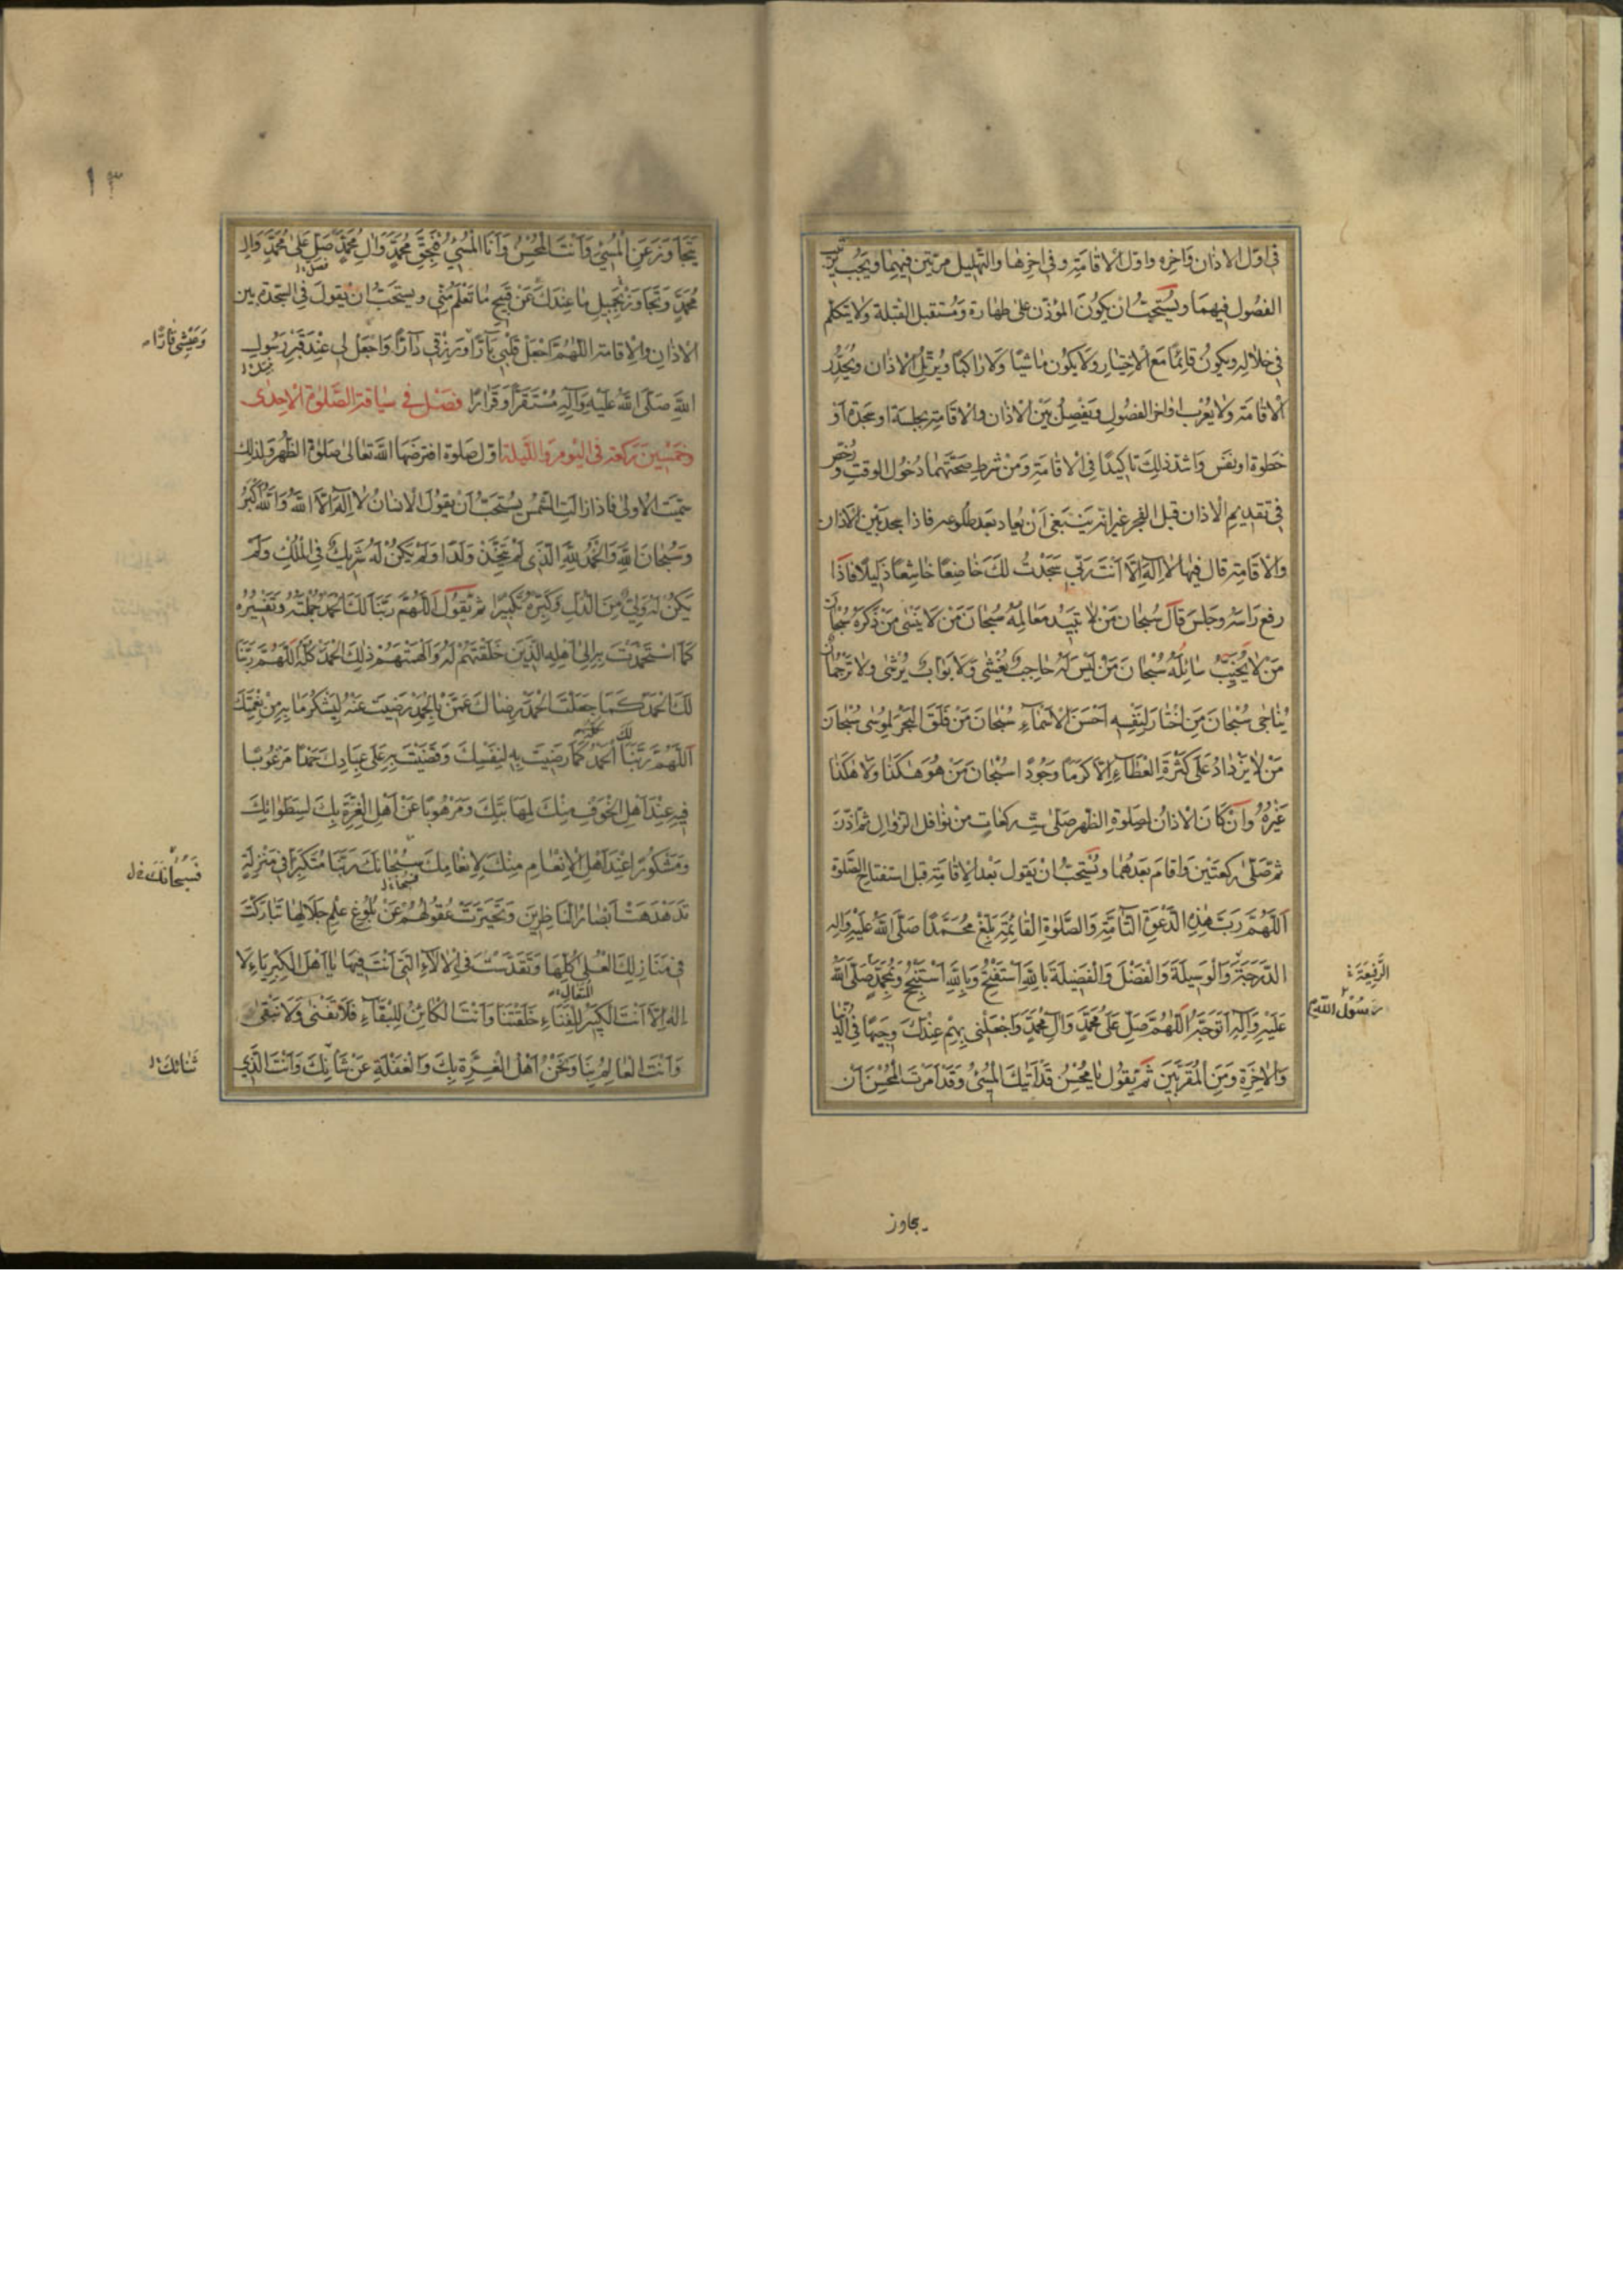 في اوّل الاذان وَاخره واوّل الاقامَتِه وفي اخرِها والتهليل مرّتين فيهما ويجب ترتيب
الفصُول فيهمَا ويُستحبّ ان يكونَ المؤذّن على طهارة وَمُستقبل القبلة وَلايتكلّم
في خلاله ويكونُ قائِمًا مَع الاختيار ولايكون ماشيًا وَلاراكبًا ويُرتّل الاذان ويُحدّر
الاقامة ولايُعرب اواخر الفصُول ويَفصِل بَيْن الاذان والاقامةِ بجلسة اوسَجدة اَوْ
خطوة اونفَس وَاشدّ ذلِكَ تاكيدًا في الاقامَةِ وَمن شرطِ صحّتهما دُخول الوقتِ ورُخّص
في تقديم الاذان قبل الفجر غير انّه يَنبَغى اَنْ يُعاد بَعد طلوعه فاذا سجد بَيْن الاَذان
وَالاقامةِ قال فيها لااِلهَ اِلّا اَنتَ رَبّي سَجَدْتُ لكَ خاضِعًا خاشِعًا ذَليلًا فاذَا
رفع رَاسَه وجلسَ قَالَ سُبحان مَن لا تبيدُ مَعَالِمُه سُبحَانَ مَنْ لَا يَنسٰى مَنْ ذَكَرَهُ سُبحان
مَن لا يُخَيّبُ سَائِلَهُ سُبحانَ مَنْ لَيسَ لَهُ حَاجِبٌ يُغْشٰى وَلَا بَوّابٌ يُرْشٰى ولا تَرْجُمان
يُناجى سُبحَانَ مَن اختارَ لِنَفْسِه اَحْسَنَ الاَسْماءِ سُبحانَ مَن فَلَقَ البَحْرَ لِمُوسٰى سُبحانَ
مَن لا يَزْدادُ عَلى كَثْرَةِ العَطَاءِ اِلّا كَرَمًا وَجُودًا سُبحان مَن هُوَ هٰكَذا وَلا هٰكَذا
غَيْرُهُ وان كانَ الاذان لصلوة الظهر صَلّى ستّ ركعات من نوافل الزوال ثمّ اذّن
ثمّ صلّى ركعتين وَاقامَ بَعدهُما ويُستحبّ ان يَقول بَعد الاقامَةِ قبل استفتاح الصّلوة
اَللّهُمَّ رَبَّ هٰذِهِ الدَّعْوَةِ التَّامَّةِ وَالصَّلوٰةِ القائِمَةِ بَلِّغْ مُحَمَّدًا صَلّى اللهُ عَلَيْهِ وَاٰلِه
الدّرجَةَ وَالْوَسيلَةَ وَالْفَضْلَ وَالْفَضيلَةَ بِاللهِ اَسْتَفْتِحُ وَبِاللهِ اَسْتَنْجِحُ وَبِمُحَمَّدٍ صَلّى اللهُ
الرَّفيعَةَ
رَسُول اللهِ
عَلَيْهِ وَاٰلِه اَتَوَجَّهُ اَللّهُمَّ صَلِّ عَلى مُحَمَّدٍ وَآلِ مُحَمَّدٍ وَاجْعَلْني بِهِمْ عِنْدَكَ وَجيهًا فِي الدُّنيا
وَالاٰخِرَةِ وَمِنَ المُقَرَّبينَ ثمَّ يَقُول يا مُحْسِنُ قَدْ اَتٰيكَ المُسيءُ وَقَدْ اَمَرْتَ المُحْسِنَ اَنْ
يتجاوز
١٣
يَتَجَاوَزَ عَنِ المُسيءِ وَاَنْتَ المُحْسِنُ وَاَنَا المُسيءُ فَبِحَقِّ مُحَمَّدٍ وَاٰلِ مُحَمَّدٍ صَلِّ عَلى مُحَمَّدٍ وَاٰلِ
مُحَمَّدٍ وَتَجاوَزْ بِجَميلِ ما عِنْدَكَ عَنْ قَبيحِ ما تَعْلَمُ مِنّي ويستَحَبّ ان يَقولَ في السّجدة بين
الاذان والاقامة اللّهُمَّ اجْعَلْ قَلْبي بارًّا وَرِزْقي دارًّا وَاجْعَلْ لي عِنْدَ قَبْرِ رَسُولِ
وَعَيْشي قارًّا
اللهِ صَلّى اللهُ عَلَيْهِ وَآلِهِ مُسْتَقَرًّا وَقَرارًا فَصْل في سياقة الصّلوٰة الاحدى
وخمسين ركعة في اليوم واللّيلة اوّل صَلوة افترضَهَا اللهُ تعَالى صَلوة الظهر ولذلك
سمّيت الاولى فاذا زالت الشمس يُستحَبّ اَن يَقولَ الانسان لا اِلهَ اِلّا اللهُ وَاللهُ اَكْبَرُ
وَسُبْحانَ اللهِ وَالْحَمْدُ لِلّهِ الَّذي لَمْ يَتَّخِذْ وَلَدًا وَلَمْ يَكُنْ لَهُ شَريكٌ فِي الْمُلْكِ وَلَمْ
يَكُنْ لَهُ وَلِيٌّ مِنَ الذُّلِّ وَكَبِّرْهُ تَكْبيرًا ثم يَقُول اَللّهُمَّ رَبَّنا لَكَ الْحَمْدُ جُمْلَتُهُ وَتَفْسيرُهُ
كَمَا اسْتَحْمَدْتَ بِه اِلى اَهْلِهِ الَّذينَ خَلَقْتَهُمْ لَهُ وَاَلْهَمْتَهُمْ ذٰلِكَ الْحَمْدَ كُلَّهُ اَللّهُمَّ رَبَّنا
لَكَ الْحَمْدُ كَما جَعَلْتَ الْحَمْدَ رِضاكَ عَمَّنْ بِالْحَمْدِ رَضيتَ عَنْهُ لِيَشْكُرَ ما بِه مِنْ نِعْمَتِكَ
اَللّهُمَّ رَبَّنا لَكَ الْحَمْدُ كَما رَضيتَ بِه لِنَفْسِكَ وَقَضَيْتَ بِه عَلى عِبادِكَ حَمْدًا مَرْغُوبًا
فيهِ عِنْدَ اَهْلِ الخَوْفِ مِنْكَ لِمَهابَتِكَ وَمَرْهُوبًا عَنْ اَهْلِ الْعِزَّةِ بِكَ لِسَطَواتِكَ
وَمَشْكُورًا عِنْدَ اَهْلِ الاِنْعامِ مِنْكَ لِاِنْعامِكَ سُبْحانَكَ رَبَّنا مُتَكَبِّرًا في مَنْزِلَةٍ
فَسُبْحانَكَ
تَدَهْدَهَتْ اَبْصارُ النّاظِرينَ وَتَحَيَّرَتْ عُقُولُهُمْ عَنْ بُلُوغِ عِلْمِ جَلالِها تَبارَكْتَ
في مَنازِلِكَ العُلٰى كُلِّها وَتَقَدَّسْتَ فِي الاٰلاءِ الَّتي اَنْتَ فيها يا اَهْلَ الكِبْرِياءِ لا
المتعال
اِلهَ اِلّا اَنْتَ الكَبيرُ لِلْفَناءِ خَلَقْتَنا وَاَنْتَ الكائِنُ لِلْبَقاءِ فَلا تَفْنٰى وَلا نَبْقٰى
وَاَنْتَ العالِمُ بِنا وَنَحْنُ اَهْلُ الغِرَّةِ بِكَ وَالْغَفْلَةِ عَنْ شَأنِكَ وَاَنْتَ الَّذي
ثَنائِكَ